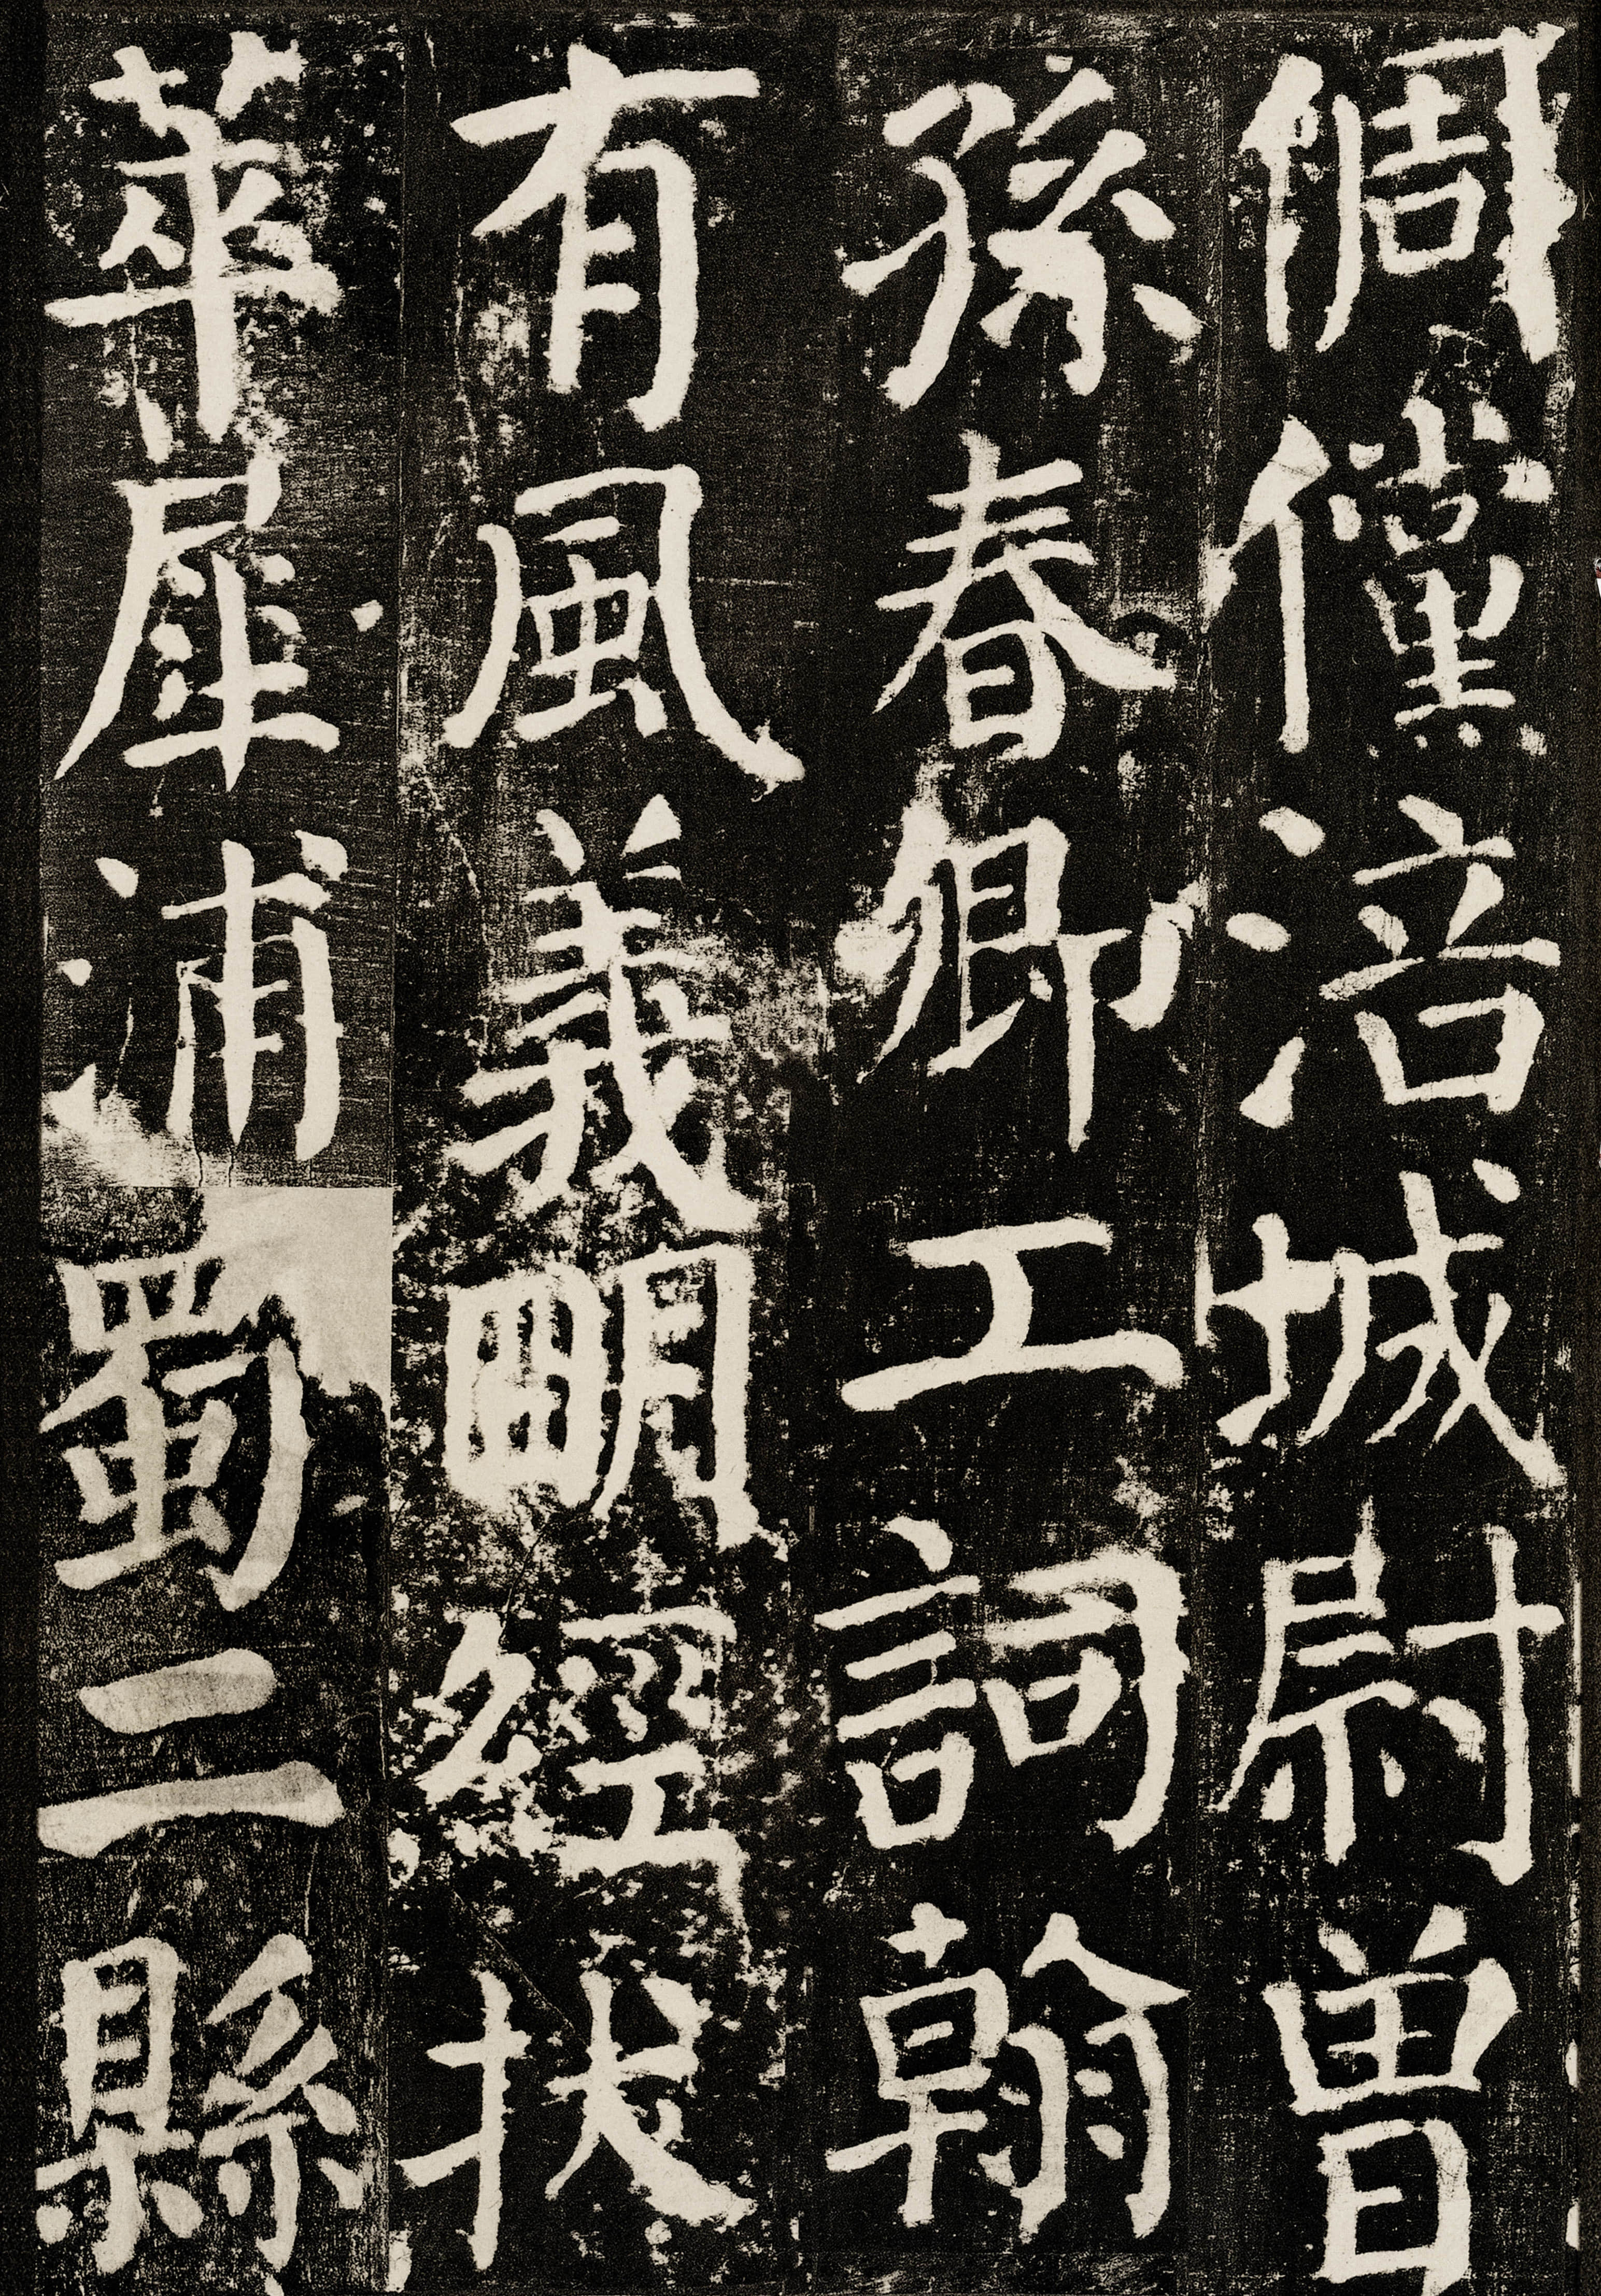 倜儻涪城尉曾
孫春卿工詞翰
有風義明經拔
萃犀浦蜀二縣